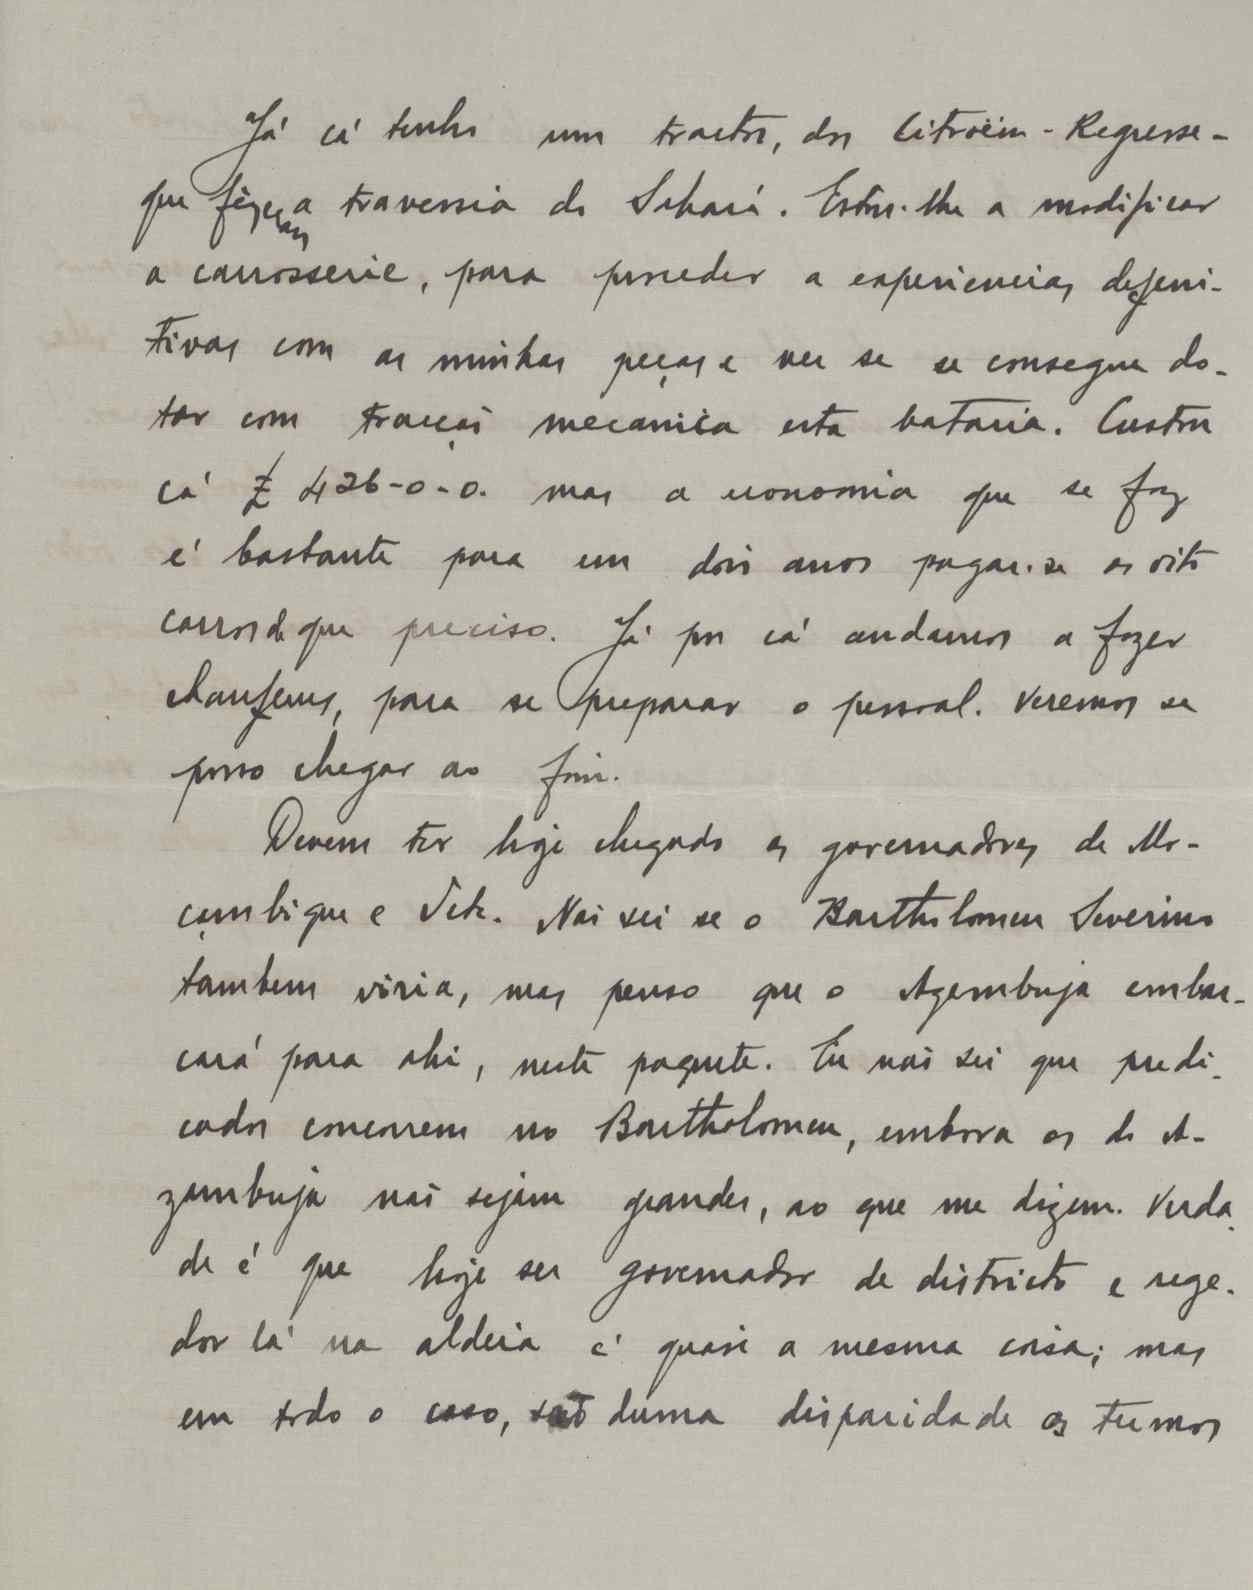 Já cá tenho um tractor, dos Citroëin - Kegresse -
que fizeram a travessia do Sahará. Estou-lhe a modificar
a carrosserie, para proceder a experiencias defeni-
tivas com as minhas peças e ver se se consegue do-
tar com tracção mecanica esta bataria. Custou
cá £ 426-0-0. mas a economia que se faz
é bastante para em dois anos pagar-se os oito
carros de que preciso. Já por cá andamos a fazer
chaufeurs, para se preparar o pessoal. Veremos se
posso chegar ao fim.
Devem ter hoje chegado os governadores de Mo-
çambique e Tete. Não sei se o Bartholomeu Severino
tambem viria, mas penso que o Azambuja embar-
cará para ahi, neste paquete. Eu não sei que predi-
cados concorrem no Bartholomeu, embora os do A-
zambuja não sejam grandes, ao que me dizem. Verda-
de é que hoje ser governador de districto e rege-
dor lá na aldeia é quasi a mesma coisa; mas
em todo o caso, são duma disparidade os termos